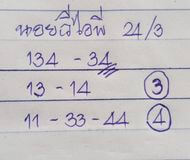 นอยฌีไอพี 24/3
134 - 34
13 - 14 3
11 - 33 - 44 4